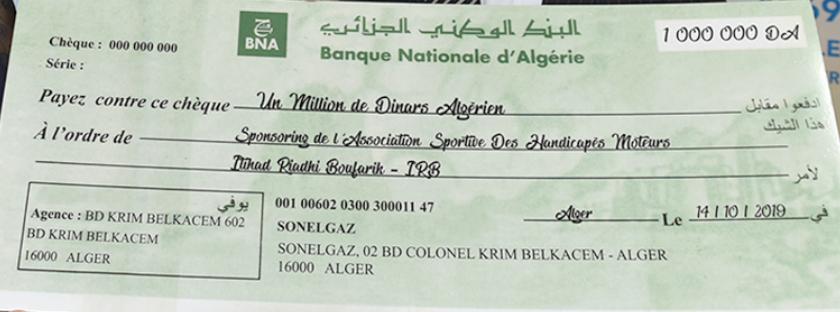 Chèque : 000 000 000
Série :
BNA
البنك الوطني الجزائري
Banque Nationale d'Algérie
1 000 000 DA
Payez contre ce chèque Un Million de Dinars Algérien ادفعوا مقابل
هذا الشيك
À l'ordre de Sponsoring de l'Association Sportive Des Handicapés Moteurs
Ittihad Riadhi Boufarik - IRB لأمر
يوفي
Agence : BD KRIM BELKACEM 602
BD KRIM BELKACEM
16000 ALGER
001 00602 0300 300011 47
SONELGAZ
SONELGAZ, 02 BD COLONEL KRIM BELKACEM - ALGER
16000 ALGER
Alger Le 14 / 10 / 2019 في